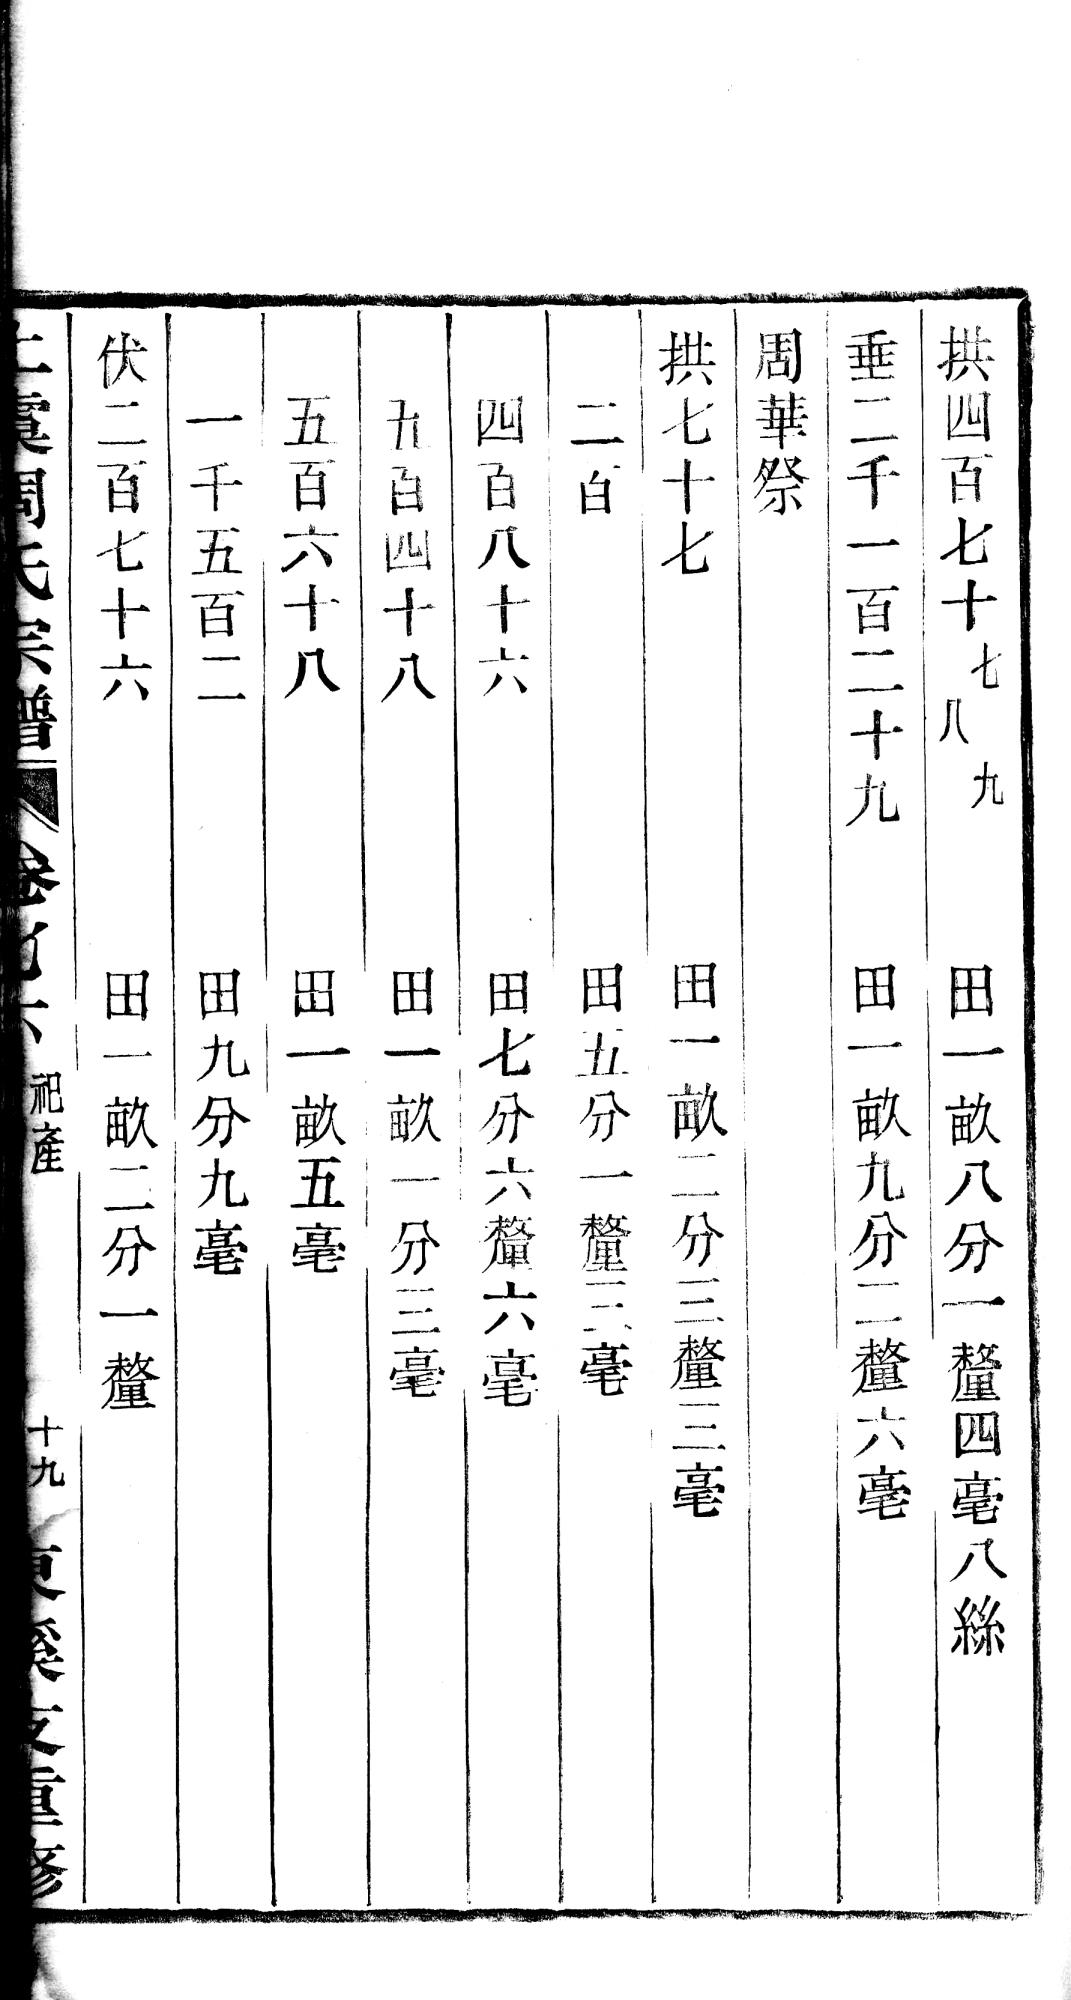 拱四百七十七八九　田一畝八分一釐四毫八絲
垂二千一百二十九　田一畝九分二釐六毫
周華祭
拱七十七　田一畝二分三釐三毫
二百　田五分一釐三毫
四百八十六　田七分六釐六毫
九百四十八　田一畝一分三毫
五百六十八　田一畝五毫
一千五百二　田九分九毫
伏二百七十六　田一畝二分一釐
上虞周氏宗譜　卷之六　祀產　十九　東溪支重修